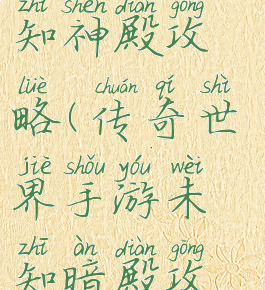 zhī shén diàn gōng
知神殿攻
lüè chuán qí shì
略(传奇世
jiè shǒu yóu wèi
界手游未
zhī àn diàn gōng
知暗殿攻